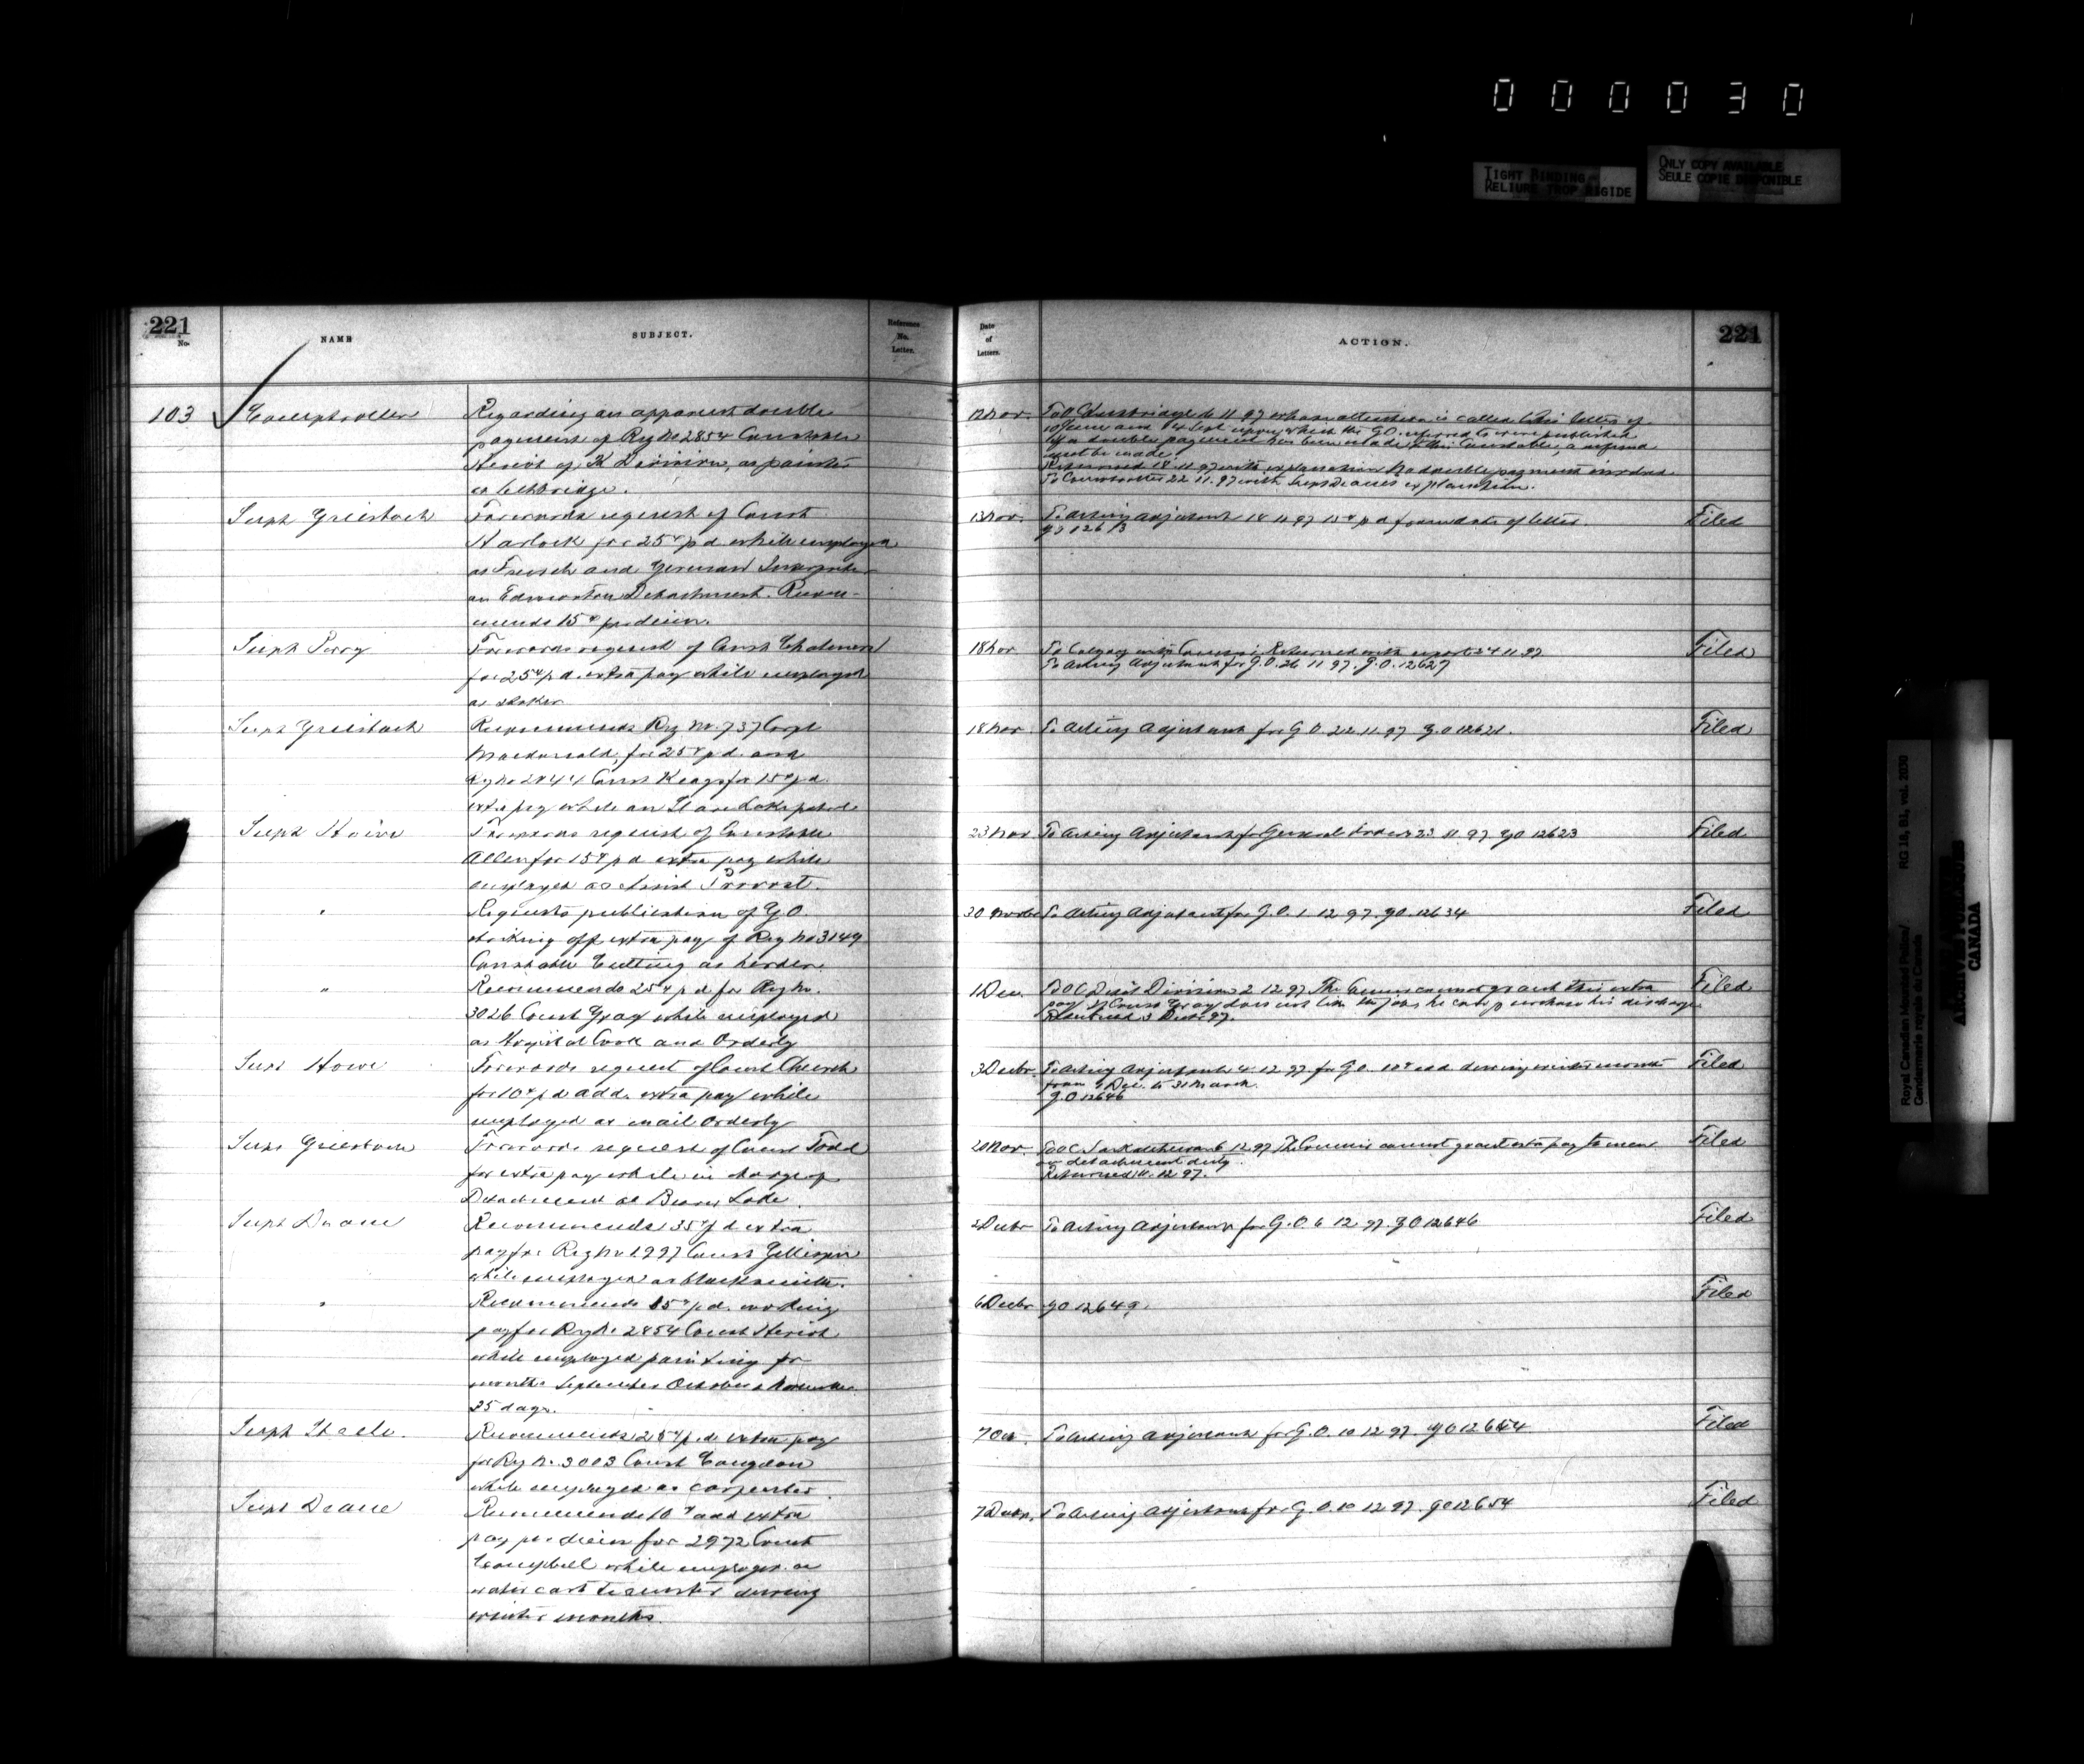 000030
TIGHT BINDING
RELIURE TROP RIGIDE
ONLY COPY AVAILABLE
SEULE COPIE DISPONIBLE
221
No.
NAME
SUBJECT.
Reference No. Letter.
Date of Letters.
ACTION.
221
103
Comptroller
Regarding an apparent double
payment of Reg No 2854 Constable
Heriot of K Division, as painter
at Lethbridge.
12 Nov.
To O C Lethbridge 16 11 97 whose attention is called to his letter of
10 June and Sept upon which the G.O. referred to were published
If a double payment has been made to this Constable, a refund
must be made.
Returned 18 11 97 with explanation No double payment involved
To Comptroller 22.11.97 with Supt Deanes explanation.
Supt Griesbach
Forwards request of Const
for 25¢ p d while employed
as French and German Interpreter
on Edmonton Detachment. Recom-
mends 15¢ per diem.
13 Nov.
To Acting Adjutant 18 11 97 15¢ p d from date of letter.
Filed
Supt Perry
Forwards request of Const Chalmers
for 25¢ p d. extra pay while employed
as stoker
18 Nov
To Calgary with Returned with report 24 11 97
To Acting Adjutant for G.O. 26 11 97. G.O. 12627
Filed
Supt Griesbach
Recommends Reg No. 737 Corpl
Macdonald, for 25¢ p d. and
Reg No Const for 15¢ p d.
extra pay while on patrol
18 Nov.
To Acting Adjutant for G O 22 11 97 G.O 12621.
Filed
Supt Howe
Forwards request of Constable
Allen for 15¢ p d extra pay while
employed as Assist Provost.
23 Nov
To Acting Adjutant for General Order 23 11 97 GO 12623
Filed
"
Requests publication of G.O.
striking off extra pay of Reg No 3149
Constable Cutting as herder.
30 Novbr
To Acting Adjutant for G.O. 1 12 97. GO. 12634
Filed
"
Recommends 25¢ p d for Reg No.
3026 Const Gray while employed
as Hospital Cook and Orderly
1 Dec.
To O C Depot Division 2 12 97 The Commr cannot grant this extra
pay. If Const Gray does not like the job he can purchase his discharge
Returned 3 Decbr 97.
Filed
Supt Howe
Forwards request of Const Church
for 10¢ p d add. extra pay while
employed as mail orderly
3 Decbr.
To Acting Adjutant 4. 12 97 for G O. 10¢ add during winter months
from 1 Dec. to 31 March.
G.O 12646
Filed
Supt Griesbach
Forwards request of Const Todd
for extra pay while in charge of
Detachment at Beaver Lake.
20 Nov.
To O C Fort Saskatchewan 6 12 97 The Commr cannot grant extra pay to men
on detachment duty.
Returned 12 97.
Filed
Supt Deane
Recommends 35¢ p d extra
pay for Reg No 1997 Const Gillespie
while employed as blacksmith.
2 Decbr
To Acting Adjutant for G.O. 6 12 97. GO 12646
Filed
"
Recommends 15¢ p d. working
pay for Reg No 2854 Const Heriot
while employed painting for
months September October & November
25 days.
6 Decbr
GO 12649.
Filed
Supt Steele.
Recommends 25¢ p.d. extra pay
for Reg No. 3003 Const Congdon
while employed as carpenter.
7 Oct.
To Acting Adjutant for G.O. 10 12 97. GO 12654
Filed
Supt Deane
Recommends 10¢ add extra
pay per diem for 2972 Const
Campbell while employed as
water cart teamster during
winter months.
7 Decbr.
To Acting Adjutant for G.O. 10 12 97. GO 12654
Filed
Royal Canadian Mounted Police/
Gendarmerie royale du Canada
RG 18, B1, vol. 2030
CANADA